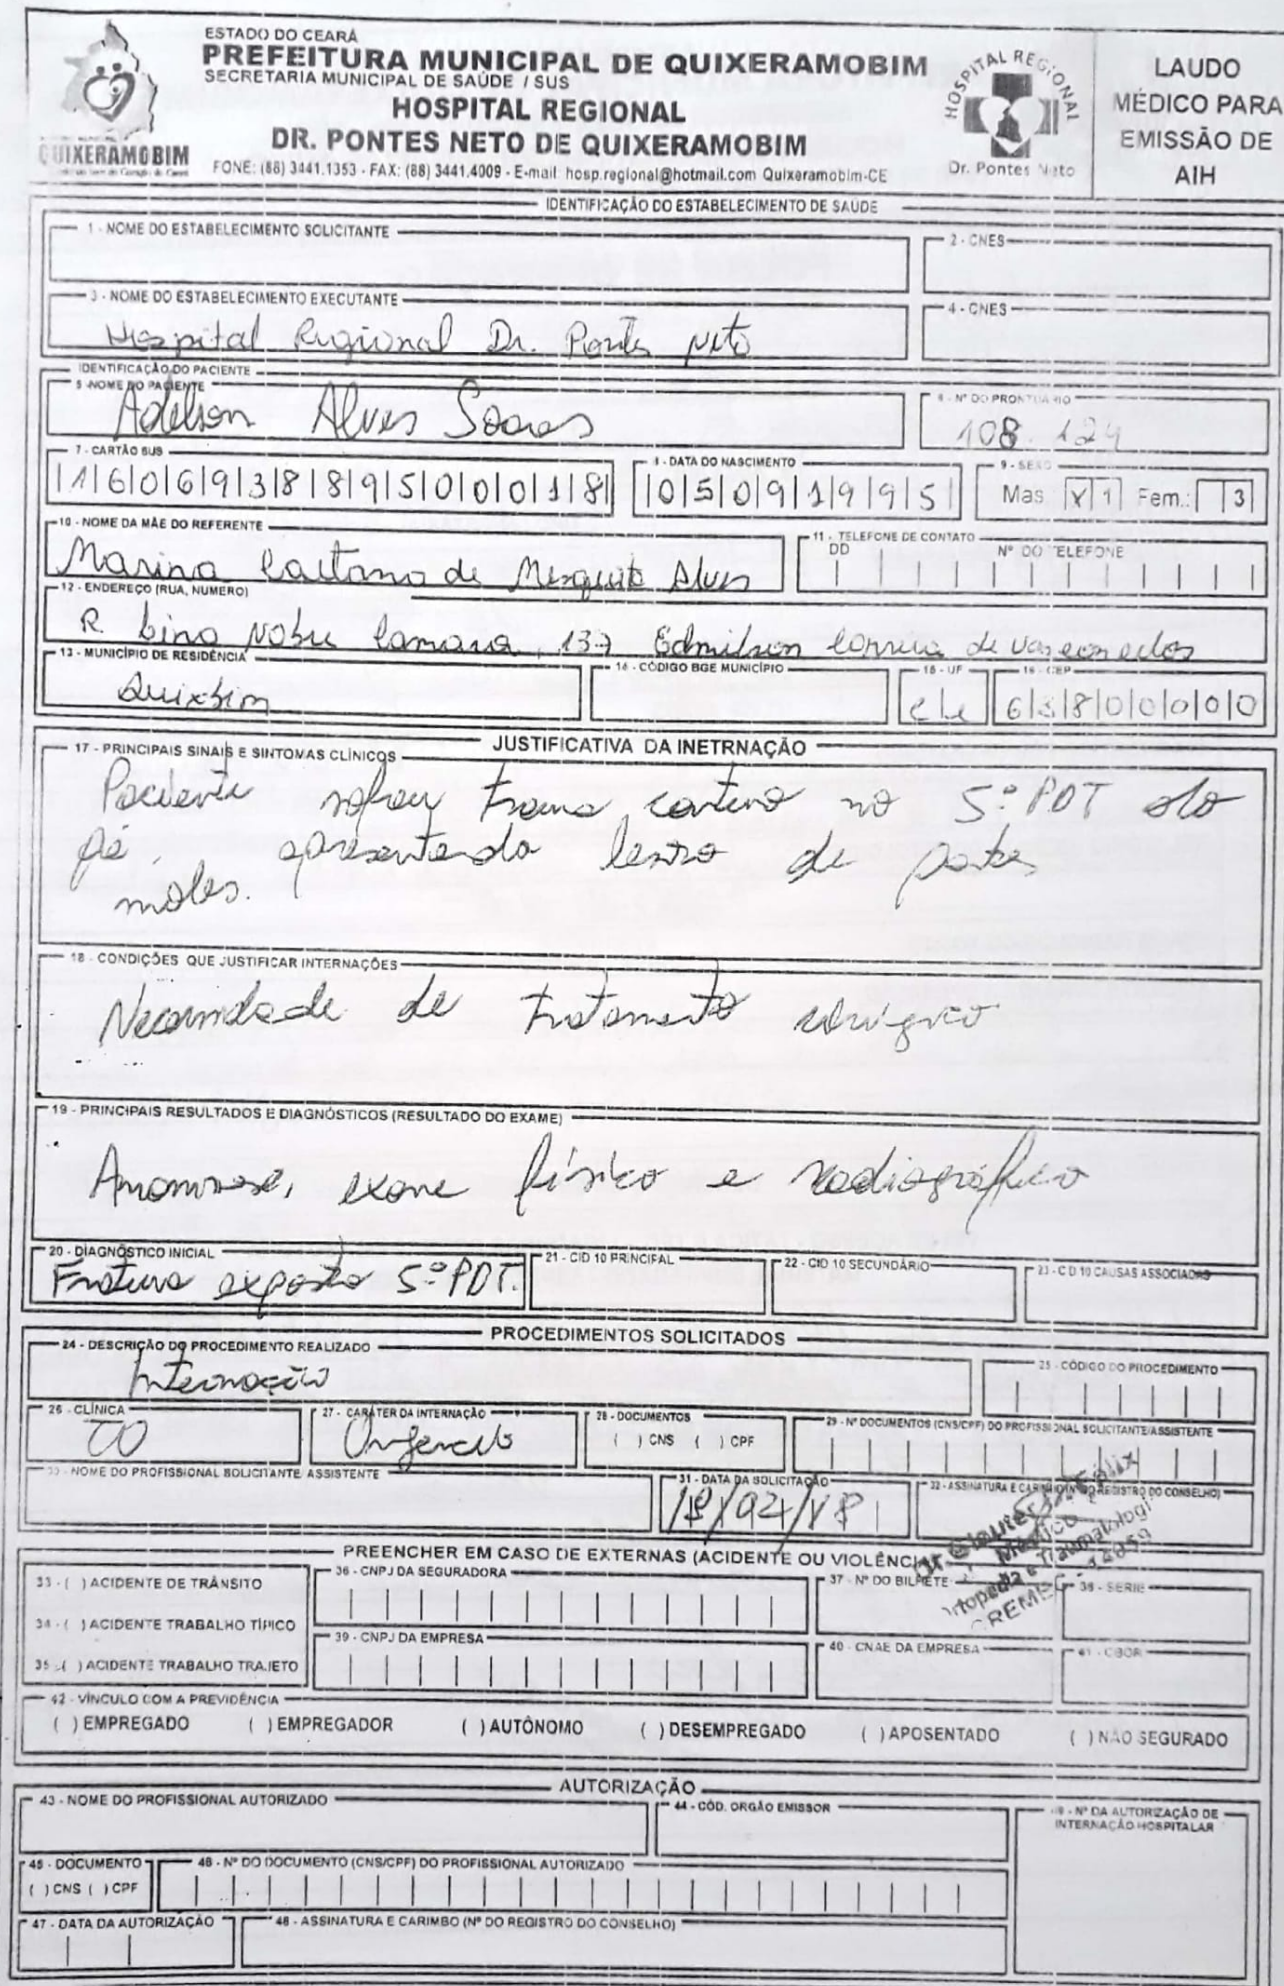 ESTADO DO CEARÁ
PREFEITURA MUNICIPAL DE QUIXERAMOBIM
SECRETARIA MUNICIPAL DE SAÚDE / SUS
HOSPITAL REGIONAL
DR. PONTES NETO DE QUIXERAMOBIM
FONE: (88) 3441.1353 - FAX: (88) 3441.4009 - E-mail: hosp.regional@hotmail.com Quixeramobim-CE
QUIXERAMOBIM
HOSPITAL REGIONAL
Dr. Pontes Neto
LAUDO
MÉDICO PARA
EMISSÃO DE
AIH
IDENTIFICAÇÃO DO ESTABELECIMENTO DE SAÚDE
1 - NOME DO ESTABELECIMENTO SOLICITANTE
2 - CNES
3 - NOME DO ESTABELECIMENTO EXECUTANTE
4 - CNES
Hospital Regional Dr. Pontes Neto
IDENTIFICAÇÃO DO PACIENTE
5 - NOME DO PACIENTE
6 - Nº DO PRONTUÁRIO
Adelson Alves Soares
108.124
7 - CARTÃO SUS
8 - DATA DO NASCIMENTO
9 - SEXO
160693889500018
05091995
Mas X 1 Fem.: 3
10 - NOME DA MÃE DO REFERENTE
11 - TELEFONE DE CONTATO
DD Nº DO TELEFONE
Marina Caetano de Mesquita Alves
12 - ENDEREÇO (RUA, NUMERO)
R. Nobre Camara, 137 Edmilson Correia de Vasconcelos
13 - MUNICÍPIO DE RESIDÊNCIA
14 - CÓDIGO BGE MUNICÍPIO
15 - UF
16 - CEP
Quixbim
ce
63800000
JUSTIFICATIVA DA INETRNAÇÃO
17 - PRINCIPAIS SINAIS E SINTOMAS CLÍNICOS
Paciente sofreu trauma contuso no 5º PDT do
pé, apresentando lesão de partes
moles.
18 - CONDIÇÕES QUE JUSTIFICAR INTERNAÇÕES
Necessidade de tratamento cirúrgico
19 - PRINCIPAIS RESULTADOS E DIAGNÓSTICOS (RESULTADO DO EXAME)
Anamnese, exame físico e radiográfico
20 - DIAGNÓSTICO INICIAL
21 - CID 10 PRINCIPAL
22 - CID 10 SECUNDÁRIO
23 - C D 10 CAUSAS ASSOCIADAS
Fratura exposta 5º PDT.
PROCEDIMENTOS SOLICITADOS
24 - DESCRIÇÃO DO PROCEDIMENTO REALIZADO
25 - CÓDIGO DO PROCEDIMENTO
Internação
26 - CLÍNICA
27 - CARÁTER DA INTERNAÇÃO
28 - DOCUMENTOS
29 - Nº DOCUMENTOS (CNS/CPF) DO PROFISSIONAL SOLICITANTE/ASSISTENTE
TO
Urgencia
( ) CNS ( ) CPF
30 - NOME DO PROFISSIONAL SOLICITANTE/ASSISTENTE
31 - DATA DA SOLICITAÇÃO
32 - ASSINATURA E CARIMBO (Nº DO REGISTRO DO CONSELHO)
Félix
Médico
Ortopedia e Traumatologi
CREMEC
PREENCHER EM CASO DE EXTERNAS (ACIDENTE OU VIOLÊNCIA
33 - ( ) ACIDENTE DE TRÂNSITO
36 - CNPJ DA SEGURADORA
37 - Nº DO BILHETE
38 - SERIE
34 - ( ) ACIDENTE TRABALHO TÍPICO
39 - CNPJ DA EMPRESA
40 - CNAE DA EMPRESA
41 - CBOR
35 - ( ) ACIDENTE TRABALHO TRAJETO
42 - VÍNCULO COM A PREVIDÊNCIA
( ) EMPREGADO ( ) EMPREGADOR ( ) AUTÔNOMO ( ) DESEMPREGADO ( ) APOSENTADO ( ) NÃO SEGURADO
AUTORIZAÇÃO
43 - NOME DO PROFISSIONAL AUTORIZADO
44 - CÓD. ORGÃO EMISSOR
49 - Nº DA AUTORIZAÇÃO DE
INTERNAÇÃO HOSPITALAR
45 - DOCUMENTO
46 - Nº DO DOCUMENTO (CNS/CPF) DO PROFISSIONAL AUTORIZADO
( ) CNS ( ) CPF
47 - DATA DA AUTORIZAÇÃO
48 - ASSINATURA E CARIMBO (Nº DO REGISTRO DO CONSELHO)